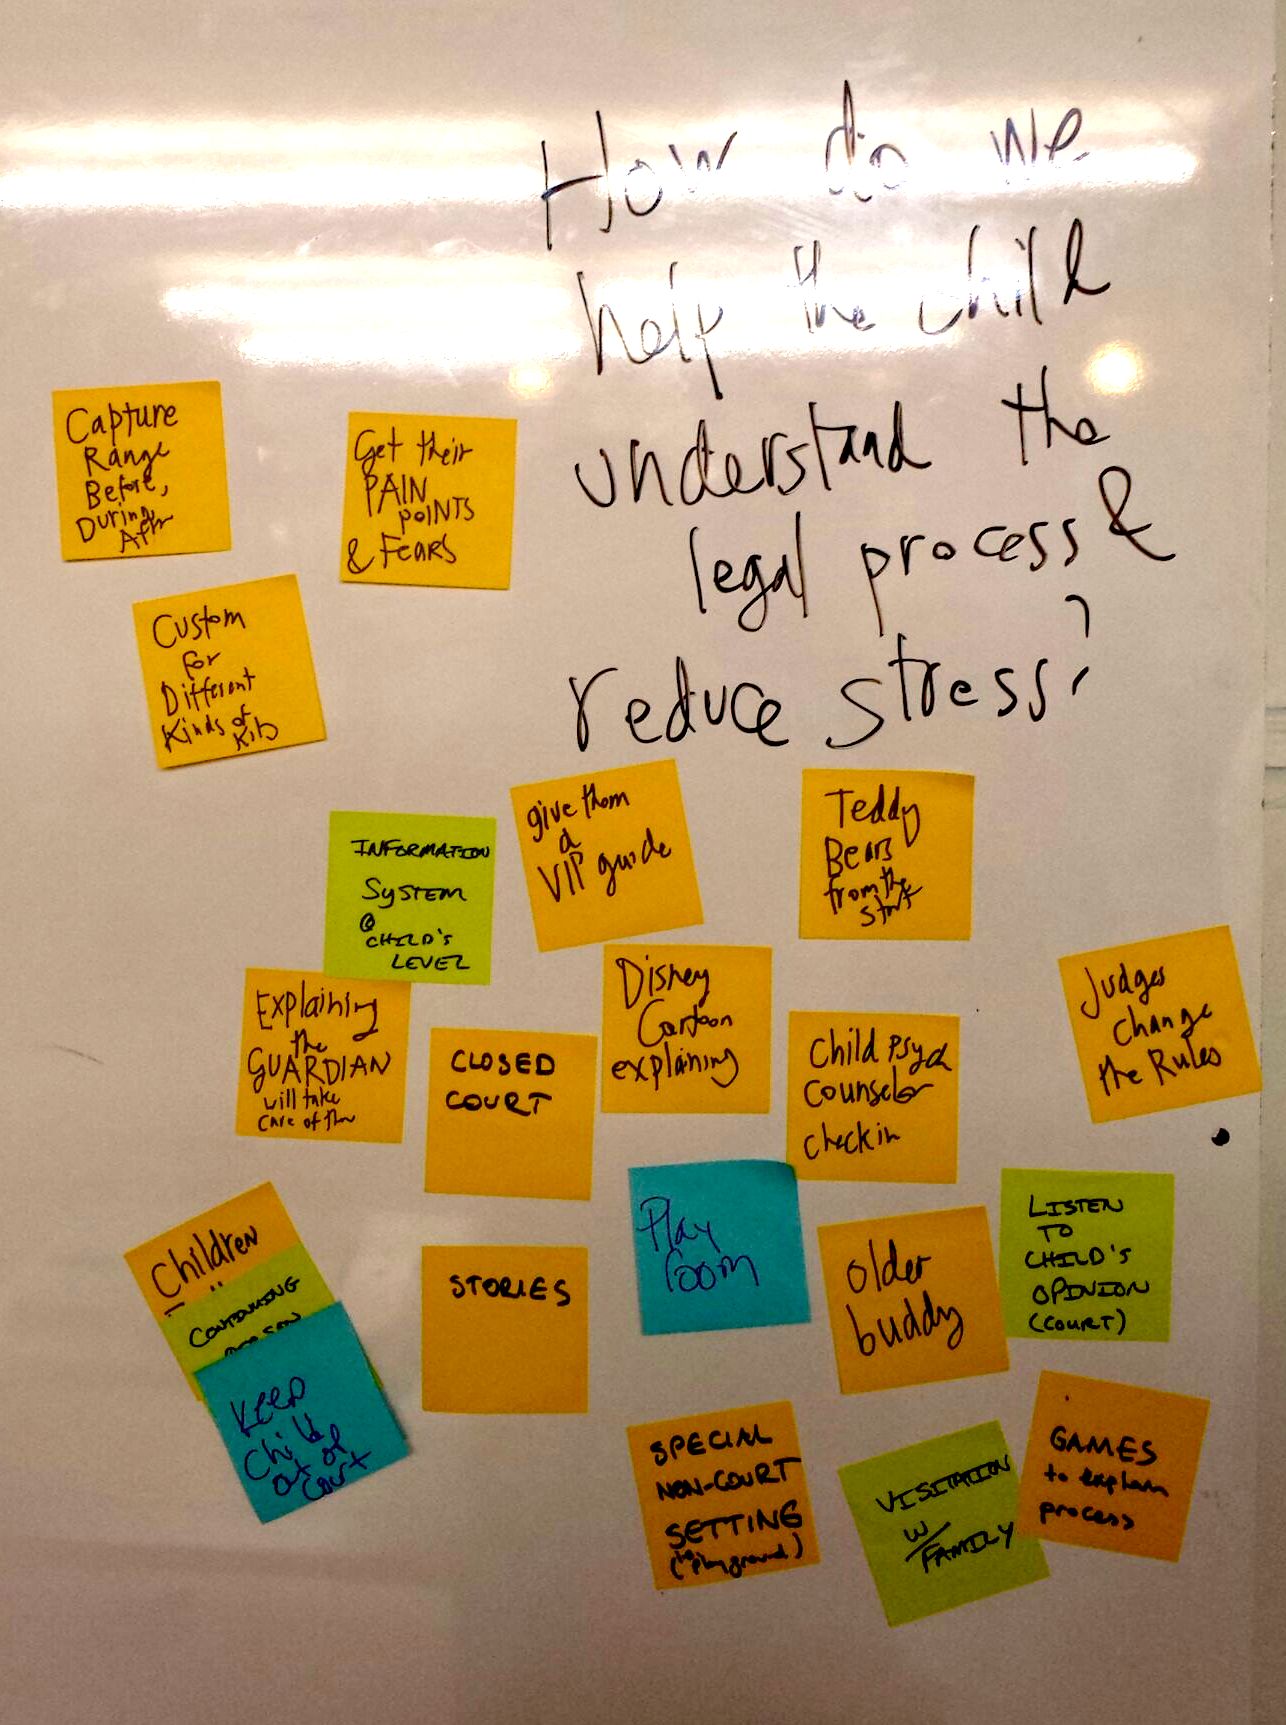 How do we
help the child
understand the
legal process &
reduce stress?
Capture
Range
Before,
During,
After
Get their
PAIN
POINTS
& FEARS
Custom
for
Different
Kinds of
Kids
INFORMATION
SYSTEM
@
CHILD'S
LEVEL
give them
a
VIP guide
Teddy
Bears
from the
start
Explaining
the
GUARDIAN
will take
care of them
CLOSED
COURT
Disney
Cartoon
explaining
Child Psych
Counselor
check in
Judges
change
the Rules
Children
CONTINUING
KEEP
Child
out of
Court
STORIES
Play
room
older
buddy
LISTEN
TO
CHILD'S
OPINION
(COURT)
SPECIAL
NON-COURT
SETTING
playground)
VISITATION
W/
FAMILY
GAMES
to explain
process